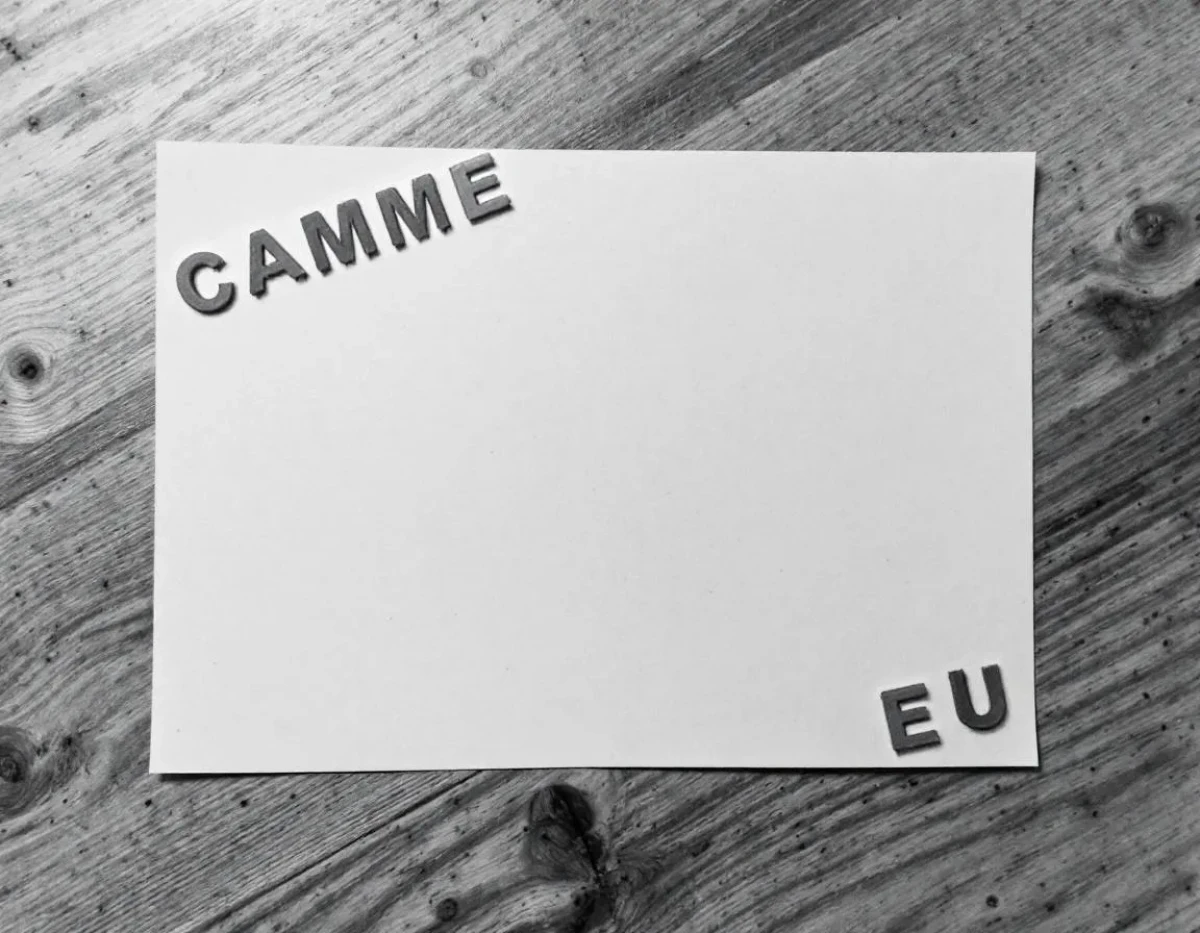 CAMME
EU